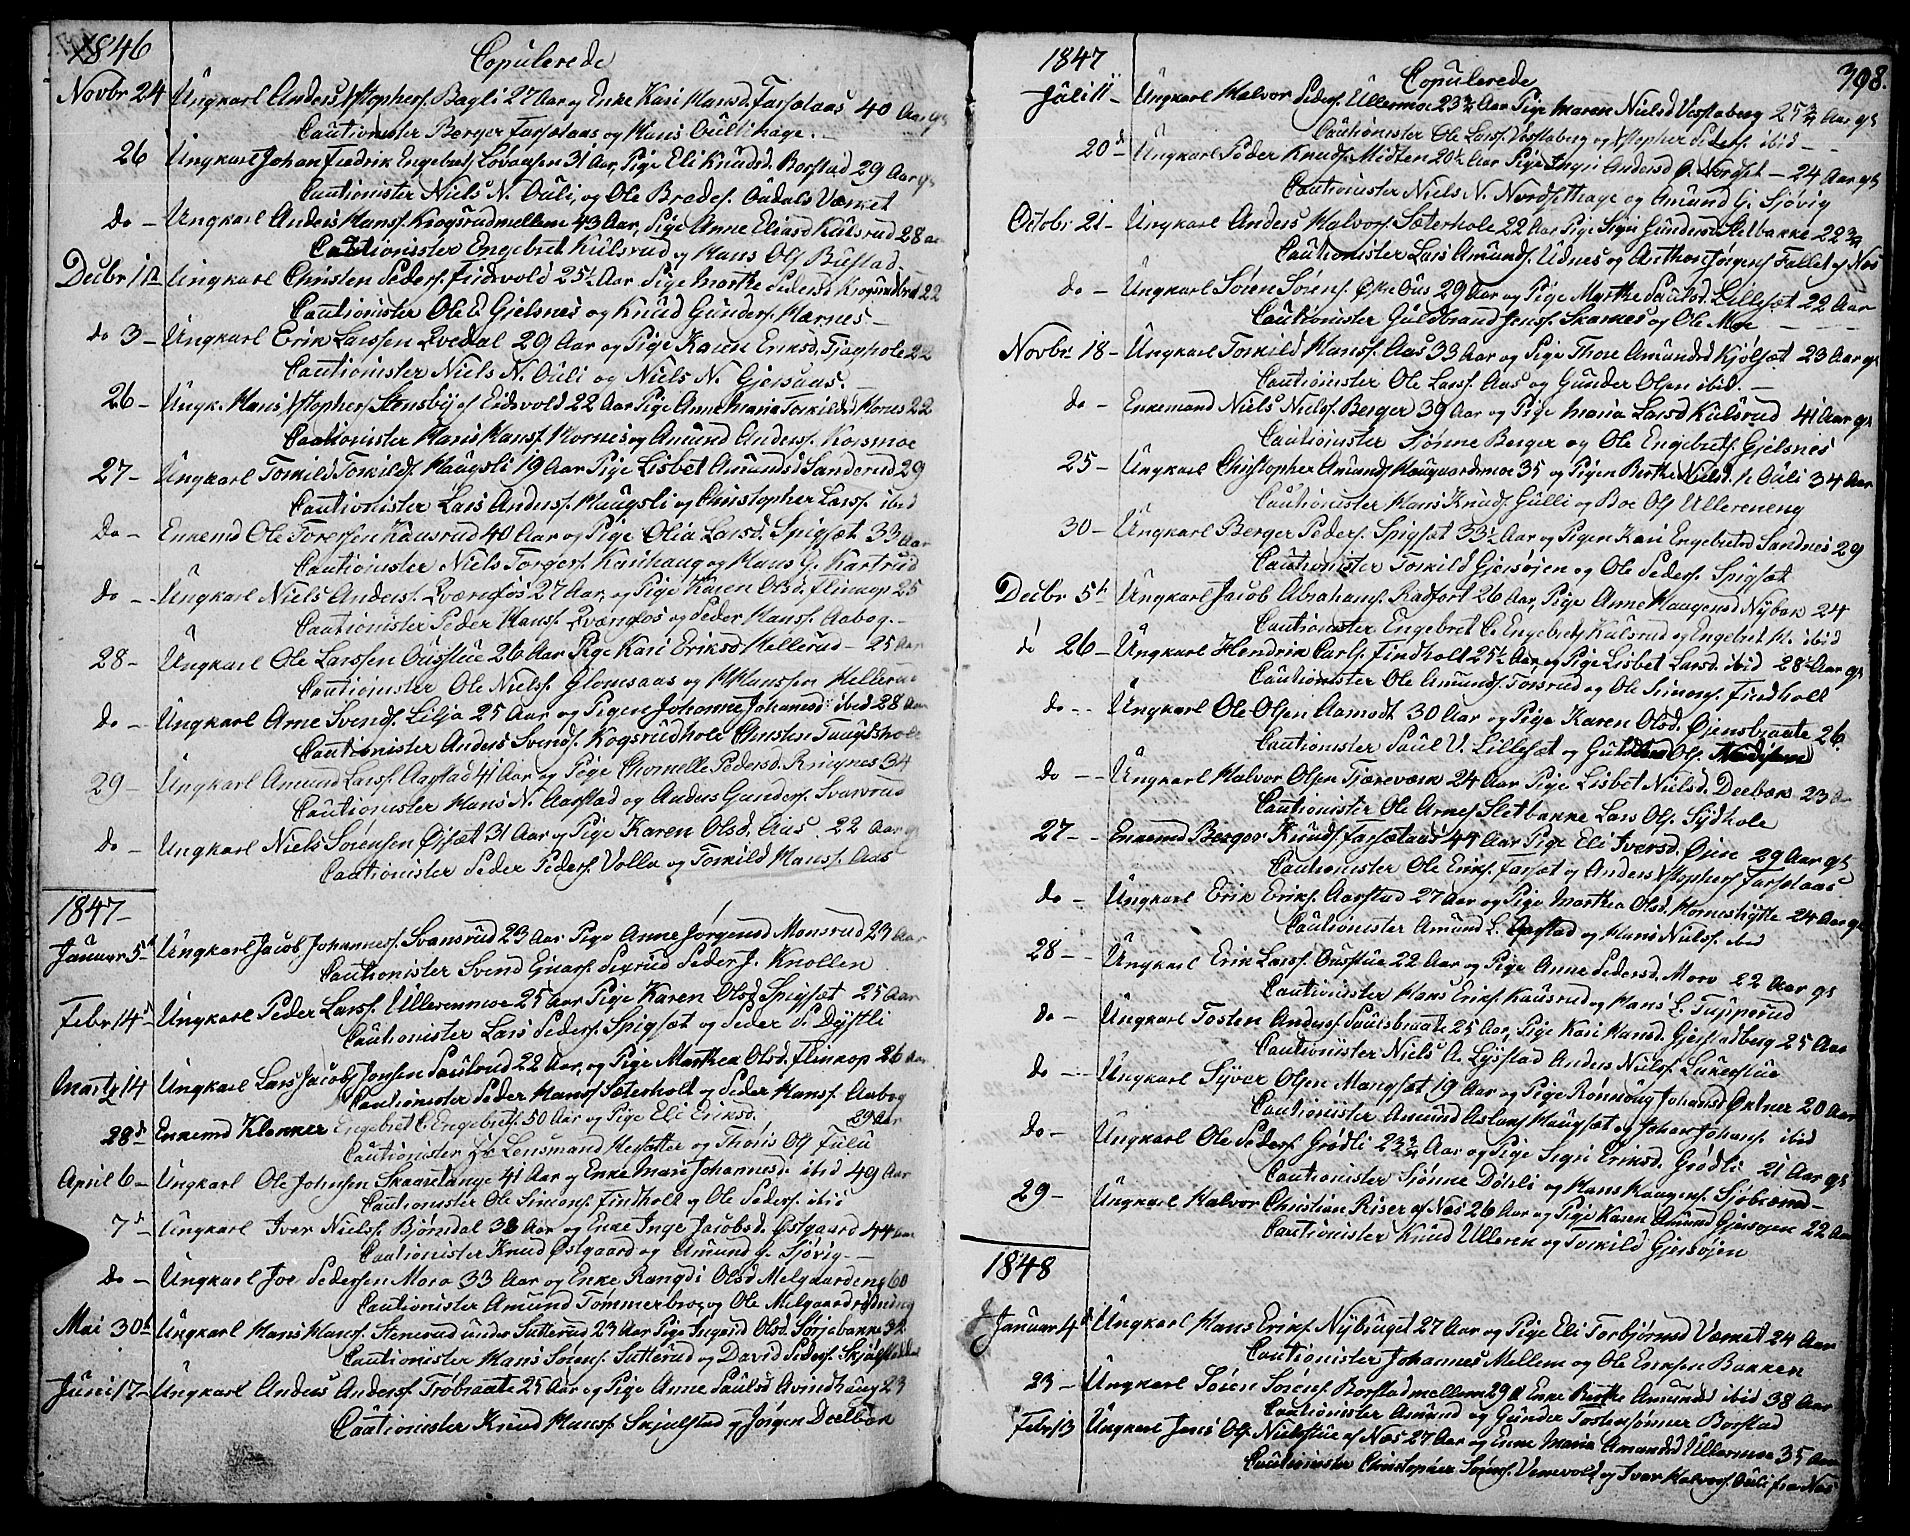 1846
Copulerede
Novbr 24 Ungkarl Anders Xstophers. Bagli 27 Aar og Enke Kari Hansd. Farsetaas 40 Aar gs
Cautionister Berger Farsetaas og Hans Oulihage.
26 Ungkarl Johan Fredrik Engebret Lovaasen 31 Aar, Pige Eli Knudsd. Borstad 29 Aar gs
Cautionister Niels N. Ouli, og Ole Bredes. Oudals Værket
do - Ungkarl Anders Hans. Krogsrudmellem 43 Aar, Pige Anne Eliasd Kulsrud 28 aa
Cautionister Engebret Kulsrud og Hans Ols. Bustad
Decbr 1ste Ungkarl Christen Peders. Eidsvold 25½ Aar Pige Marthe Pedersd 22
Cautionister Ole E Gjelsnes og Knud Gunders. Harnes
do 3 - Ungkarl Erik Larssen Qvedal 29 Aar og Pige Karen Eriksd. Tjaghole 22
Cautionister Niels N. Ouli og Niels N. Gjersaas.
26 - Ungk. Hans Xstophers. Stensby af Eidsvold 22 Aar Pige Anne Maria Torkildsd Hornes 22
Cautionister Hans Hans. Hornes og Amund Anders. Kolsmoe
27 - Ungkarl Torkild Torkilds. Haugsli 19 Aar Pige Lisbet Amundsd Sanderud 29
Cautionister Lars Anders. Haugsli og Christopher Lars. ibid
do - Enkemd Ole Toressen Kausrud 40 Aar og Pige Olia Larsd. Spigset 33 Aar
Cautionister Niels Torgers. Karihaug og Hans G. Kartrud
do - Ungkarl Niels Anders. Qværnfos 27 Aar, og Pige Karen Olsd. Flinkop 25
Cautionister Peder Hans. Qværnfos og Peder Hans. Aabog.
28 - Ungkarl Ole Larssen Ousstue 26 Aar Pige Kari Eriksd Hellerud - 25 Aar
Cautionister Ole Niels. Glomsaas og H Hanssen Hellerud
do - Ungkarl Arne Svends. Lilja 25 Aar og Pigen Johanne Johansd. ibid 28 Aar
Cautionister Anders Svends. Kogsrudhole Christen Taugshole
29 - Ungkarl Amund Lars. Aarstad 41 Aar og Pige Thornelle Pedersd. Ringnes 34
Cautionister Hans N. Aarstad og Anders Gunders. Svarsrud
do - Ungkarl Niels Sørensen Øiset 31 Aar og Pige Karen Olsd. Aas. 22 Aar gs
Cautionister Peder Peders. Volla og Torkild Hans. Aas
1847
Januar 5te Ungkarl Jacob Johannes. Svansrud 23 Aar Pige Anne Jørgensd Monsrud 23 Aar
Cautionister Svend Einars. Sigrud Peder J. Knollen
Febr 14de Ungkarl Peder Lars. Ullerenmoe 25 Aar Pige Karen Olsd. Spigset 25 Aar
Cautionister Lars Peders. Spigset og Peder P. Dystli
Martz 14 Ungkarl Lars Jacob Jonsen Paulrud 22 Aar og Pige Marthea Olsd. Flinkop 26 Aar
Cautionister Peder Hans. Sæterholt og Peder Hans. Aabog
28de Enkemd Klokker Engebret C. Engebrets. 50 Aar og Pige Eli Eriksd. 39 Aar
Cautionister Lensmand Hesselter og Thoris Ols. Fulu
April 6 - Ungkarl Ole Johnsen Skaaretange 41 Aar og Enke Mari Johannesd. ibid 49 Aar
Cautionister Ole Simons. Findholt og Ole Peders. ibid
7de Ungkarl Iver Niels. Bjørndal 38 Aar og Enke Inge Jacobsd. Østgaard 44 Aar
Cautionister Knud Østgaard og Amund G. Sjøvig
do - Ungkarl Joe Pedersen Mora 33 Aar og Enke Rangdi Olsd Melgaardeng 60
Cautionister Amund Tømmerbrog og Ole Melgaardrydning
Mai 30te Ungkarl Hans Hans. Stenerud under Sutterud 23 Aar Pige Ingerid Olsd. Sørjebakke 32
Cautionister Hans Sørens. Sutterud og David Peders.
Juni 17 - Ungkarl Anders Anders. Trøbraate 25 Aar og Pige Anne Paulsd Avindhaug 23
Cautionister Knud Hans. Skjulstad og Jørgen Dælbæk
398.
1847
Copulerede
Juli 11 - Ungkarl Halvor Peders. Ullernmoe 23¾ Aar Pige Maren Nielsd Vestaberg 25¾ Aar gs
Cautionister Ole Lars. Vestaberg og Xstopher Peders. ibid -
20de Ungkarl Peder Knuds. Midten 20½ Aar Pige Ingri Andersd N. Nordset - 24 Aar gs
Cautionister Niels N. Nordsethage og Amund G. Sjøvig
Octobr 21 - Ungkarl Anders Halvors. Sæterhole 22 Aar Pige Sigri Gundersd Sletbakke 22¾
Cautionister Lars Amunds. Udnes og Anthon Jørgens. Fallet af Næs
do - Ungkarl Søren Sørens. Øke Ous 29 Aar og Pige Myrthe Paulsd. Lilleset 22 Aar
Cautionister Guldbrand Jens. Skarnes og Ole Moe
Novbr 18 - Ungkarl Torkild Hans. Aas 33 Aar og Pige Thore Amundsd Kjølset 23 Aar gs
Cautionister Ole Lars. Aas og Gunder Olsen ibid.
do - Enkemand Niels Niels. Berger 39 Aar og Pige Maria Larsd Kulsrud 41 Aar gs
Cautionister Sjønne Berger og Ole Engebrets. Gjelsnes
25 - Ungkarl Christopher Amunds. Haugaardsmoe 35 og Pigen Berthe Nielsd. N. Ouli 34 Aar
Cautionister Hans Knuds. Gulli og Boe Ols. Ullereneng
30 - Ungkarl Berger Peders. Spigset 33½ Aar og Pigen Kari Engebretsd Sandnes 29
Cautionister Torkild Gjersøjen og Ole Peders. Spigset
Decbr 5te Ungkarl Jacob Abrahams. Rasfort 26 Aar, Pige Anne Haagensd Nybak 24
Cautionister Engebret C. Engebrets. Kulsrud og Engebret H. ibid
d 26 - Ungkarl Hendrik Carls. Findholt 25½ Aar og Pige Lisbet Larsd. ibid 28½ Aar gs
Cautionister Ole Amunds. Forsrud og Ole Simons. Findholt
do - Ungkarl Ole Olsen Aamodt 30 Aar og Pige Karen Olsd. Øjensbraate 26.
Cautionister Paul V. Lilleset og Gulbrand Ols.
do - Ungkarl Halvor Olsen Tjæreværk 24 Aar Pige Lisbet Nielsd. Deebæk 23 A
Cautionister Ole Arnes. Sletbakke Lars Ols. Sydhole
27 - Enkemd Berger Knuds. Farsetaas 44 Aar Pige Eli Iversd. Øyre 29 Aar gs
Cautionister Ole Eriks. Farset og Anders Xstophers. Farsetaas
do - Ungkarl Erik Eriks. Aarstad 27 Aar og Pige Marthea Olsd. Horneshytte 24 Aar gs
Cautionister Amund L. Aarstad og Hans Niels. ibid
28 - Ungkarl Erik Lars. Ousstue 22 Aar og Pige Anne Pedersd. Moro 22 Aar gs
Cautionister Hans Eriks. Kausrud og Hans L. Tupperud
do - Ungkarl Tosten Anders. Paulsbraate 25 Aar, Pige Kari Hansd. Gjerstadberg 25 Aar
Cautionister Niels A. Lystad Anders Niels. Lukestue
do - Ungkarl Syver Olsen Mangset 19 Aar og Pige Rønnaug Johansd Øktner 20 Aar
Cautionister Amund Aslaks. Haugset og Johan Johans. ibid
do - Ungkarl Ole Peders. Grødli 23¾ Aar og Pige Sigri Eriksd. Grødli 21 Aar gs
Cautionister Sjønne Dølsli og Hans Haagens. Sjøbrænd
29 - Ungkarl Halvor Christian Riser af Næs 26 Aar og Pige Karen Amund Gjersøjen 22 Aar
Cautionister Knud Ulleren og Torkild Gjersøjen
1848
Januar 4de Ungkarl Hans Eriks. Nybruget 27 Aar og Pige Eli Torbjørnsd Værket 24 Aar
Cautionister Johannes Mellem og Ole Eriksen Bakken
23 - Ungkarl Søren Sørens. Borstadmellem 29 A Enke Berthe Amundsd ibid 38 Aar
Cautionister Amund og Gunder Tostensønner Borstad
Febr 13 Ungkarl Jens Ols. Nielsstue af Næs 27 Aar og Enke Maria Amundsd Ullernmoe 35 Aar
Cautionister Christopher Sørens. Vennevold og Iver Halvors. Ouli fra Næs